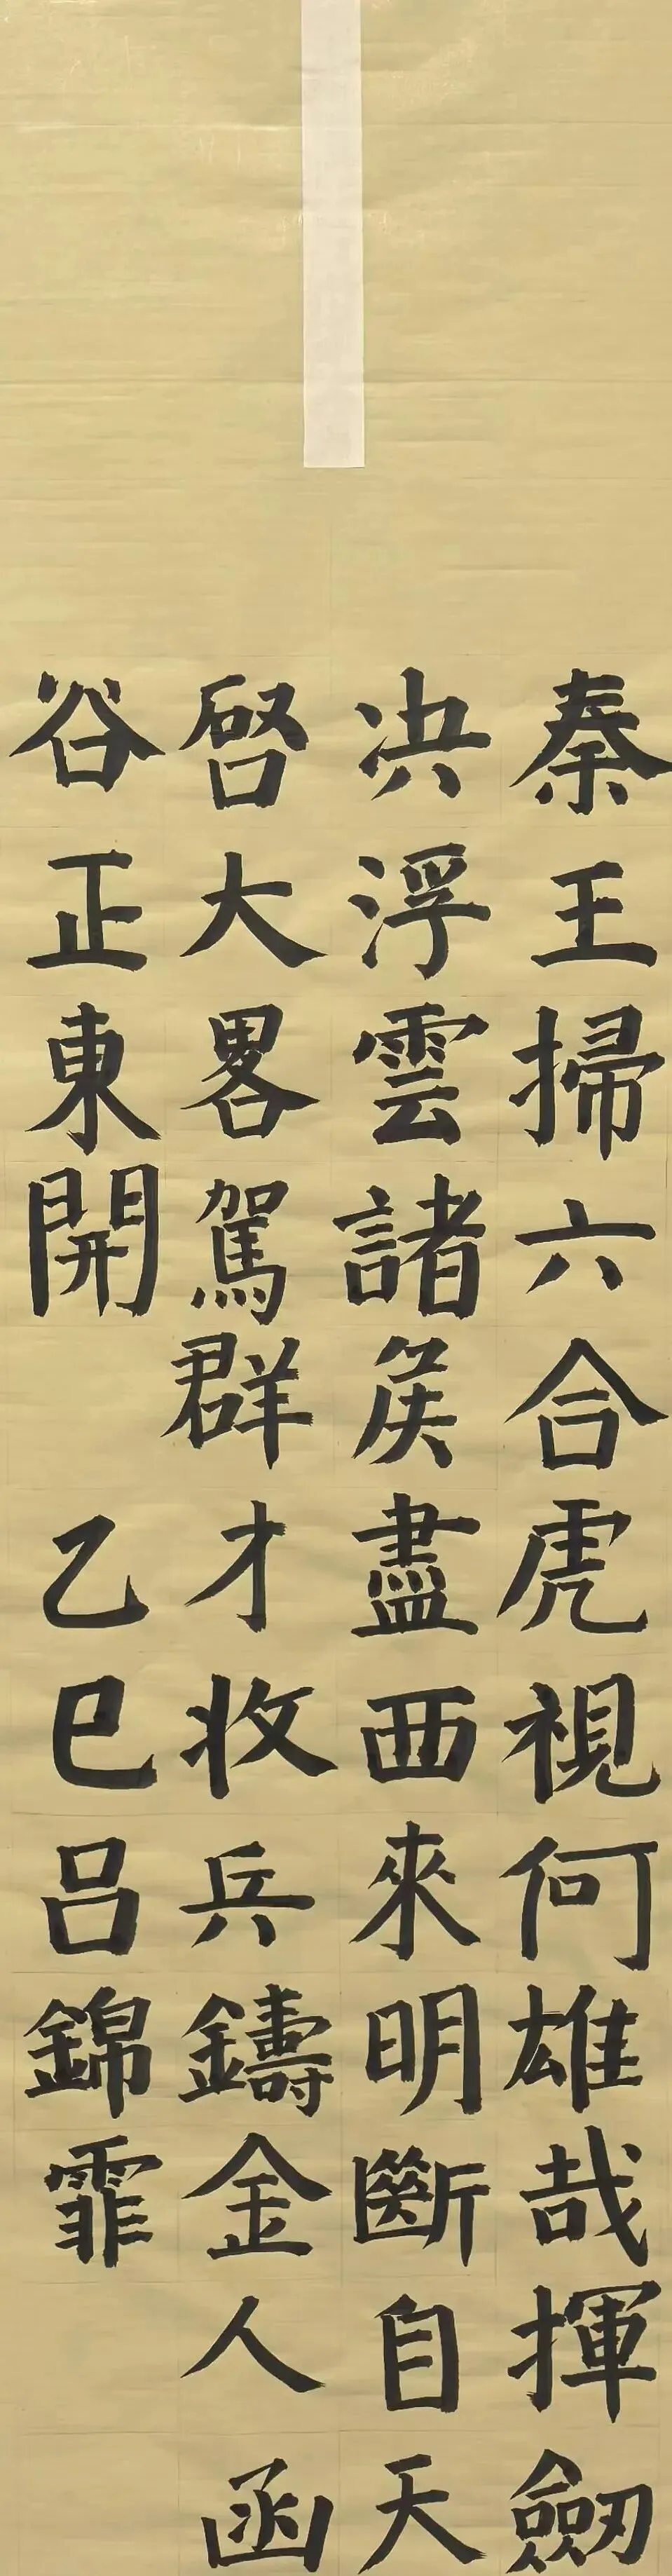 秦王掃六合虎視何雄哉揮劒
决浮雲諸矦盡西來明斷自天
啓大畧駕群才收兵鑄金人函
谷正東開
乙巳吕錦霏